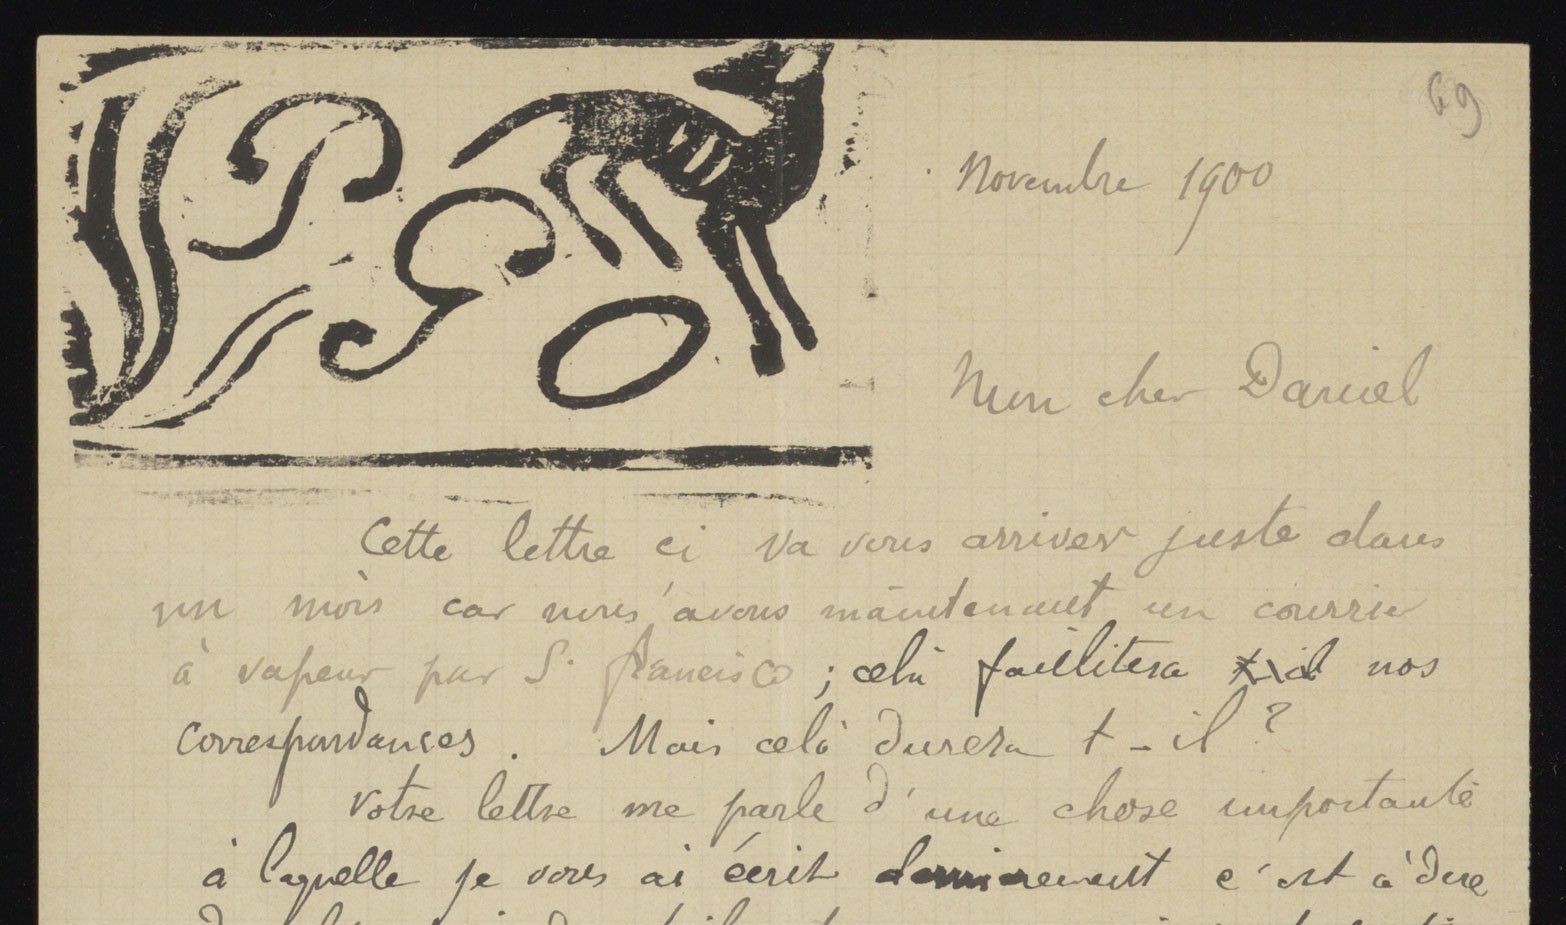 PGO
69
Novembre 1900
Mon cher Daniel
Cette lettre ci va vous arriver juste dans
un mois car nous avons maintenant un courrier
à vapeur par S. Francisco ; celà facilitera nos
correspondances. Mais celà durera t-il ?
Votre lettre me parle d'une chose importante
à laquelle je vous ai écrit dernièrement c'est à dire